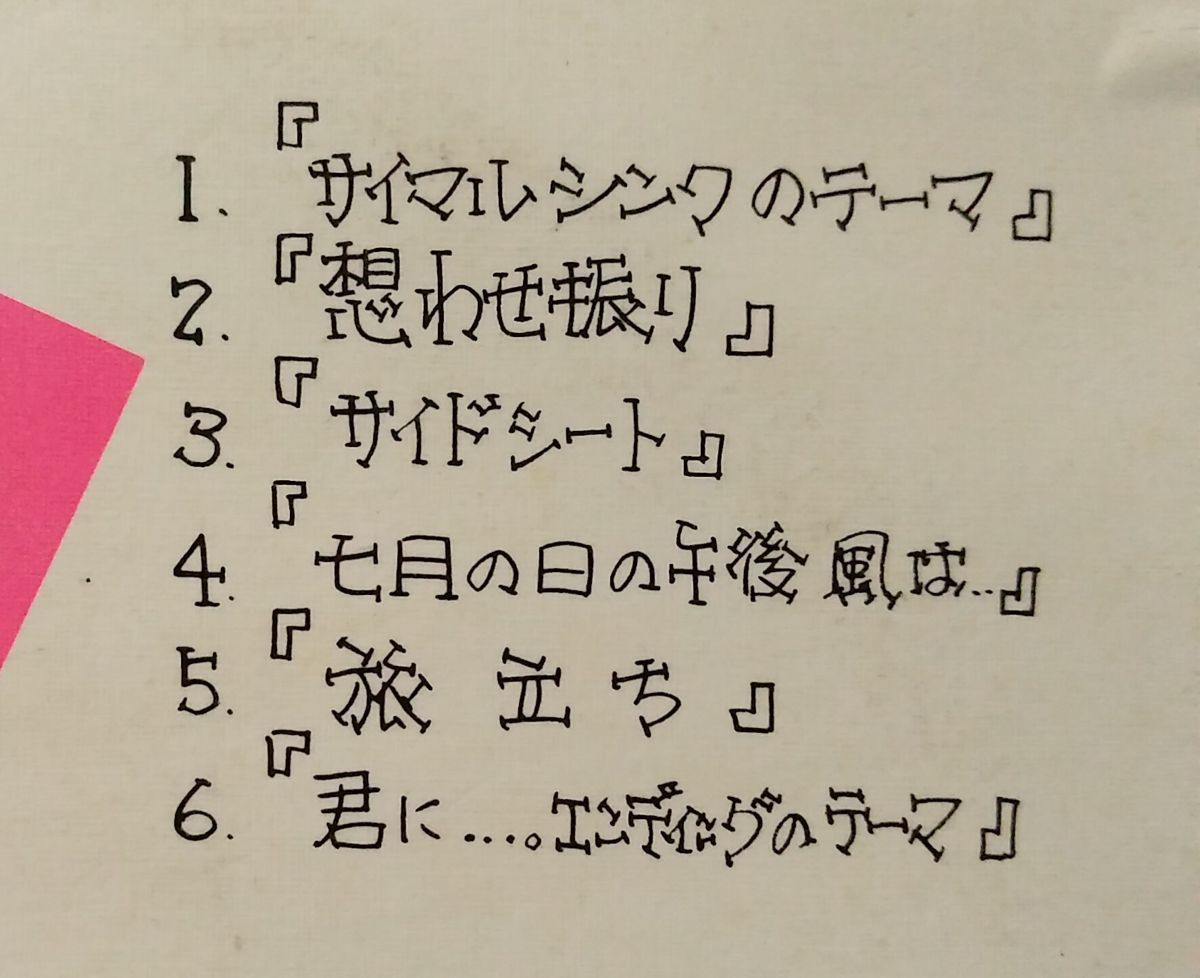 1. 『サイマルシンクのテーマ』
2. 『想わせ振り』
3. 『サイドシート』
4. 『七月の日の午後風は..』
5. 『旅立ち』
6. 『君に....。エンディングのテーマ』